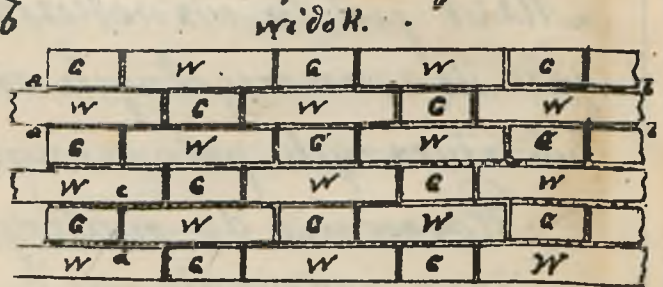 б
widok.
G W G W G
W G W G W
G W G W G
W G W G W
G W G W G
W G W G W